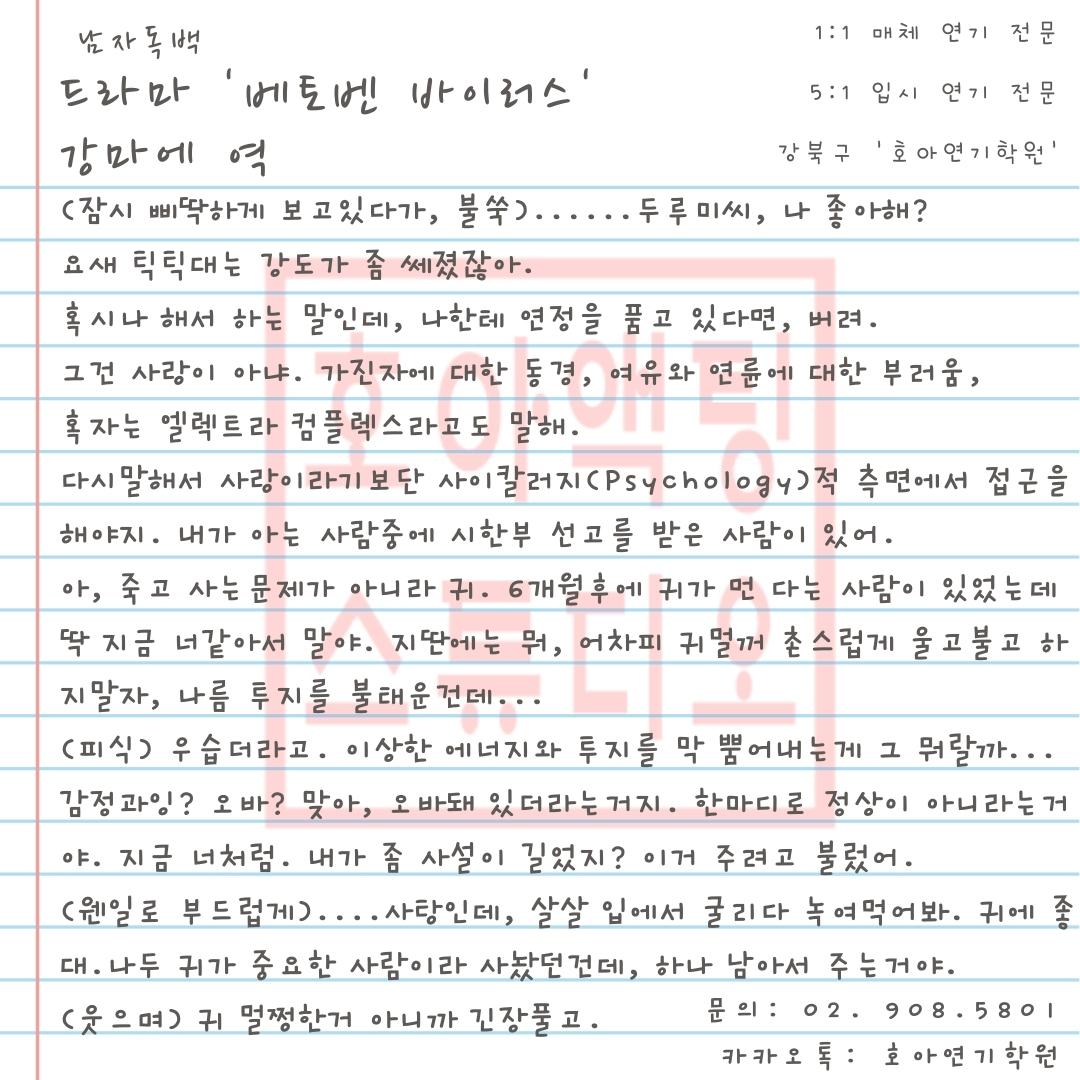 남자독백
드라마 '베토벤 바이러스'
강마에 역
1:1 매체 연기 전문
5:1 입시 연기 전문
강북구 '호아연기학원'
(잠시 삐딱하게 보고있다가, 불쑥)......두루미씨, 나 좋아해?
요새 틱틱대는 강도가 좀 쎄졌잖아.
혹시나 해서 하는 말인데, 나한테 연정을 품고 있다면, 버려.
그건 사랑이 아냐. 가진자에 대한 동경, 여유와 연륜에 대한 부러움,
혹자는 엘렉트라 컴플렉스라고도 말해.
다시말해서 사랑이라기보단 사이칼러지(Psychology)적 측면에서 접근을
해야지. 내가 아는 사람중에 시한부 선고를 받은 사람이 있어.
아, 죽고 사는문제가 아니라 귀. 6개월후에 귀가 먼 다는 사람이 있었는데
딱 지금 너같아서 말야. 지딴에는 뭐, 어차피 귀멀꺼 촌스럽게 울고불고 하
지말자, 나름 투지를 불태운건데...
(피식) 우습더라고. 이상한 에너지와 투지를 막 뿜어내는게 그 뭐랄까...
감정과잉? 오바? 맞아, 오바돼 있더라는거지. 한마디로 정상이 아니라는거
야. 지금 너처럼. 내가 좀 사설이 길었지? 이거 주려고 불렀어.
(웬일로 부드럽게)....사탕인데, 살살 입에서 굴리다 녹여먹어봐. 귀에 좋
대.나두 귀가 중요한 사람이라 사놨던건데, 하나 남아서 주는거야.
(웃으며) 귀 멀쩡한거 아니까 긴장풀고.
문의: 02. 908.5801
카카오톡: 호아연기학원
호아액팅
스튜디오